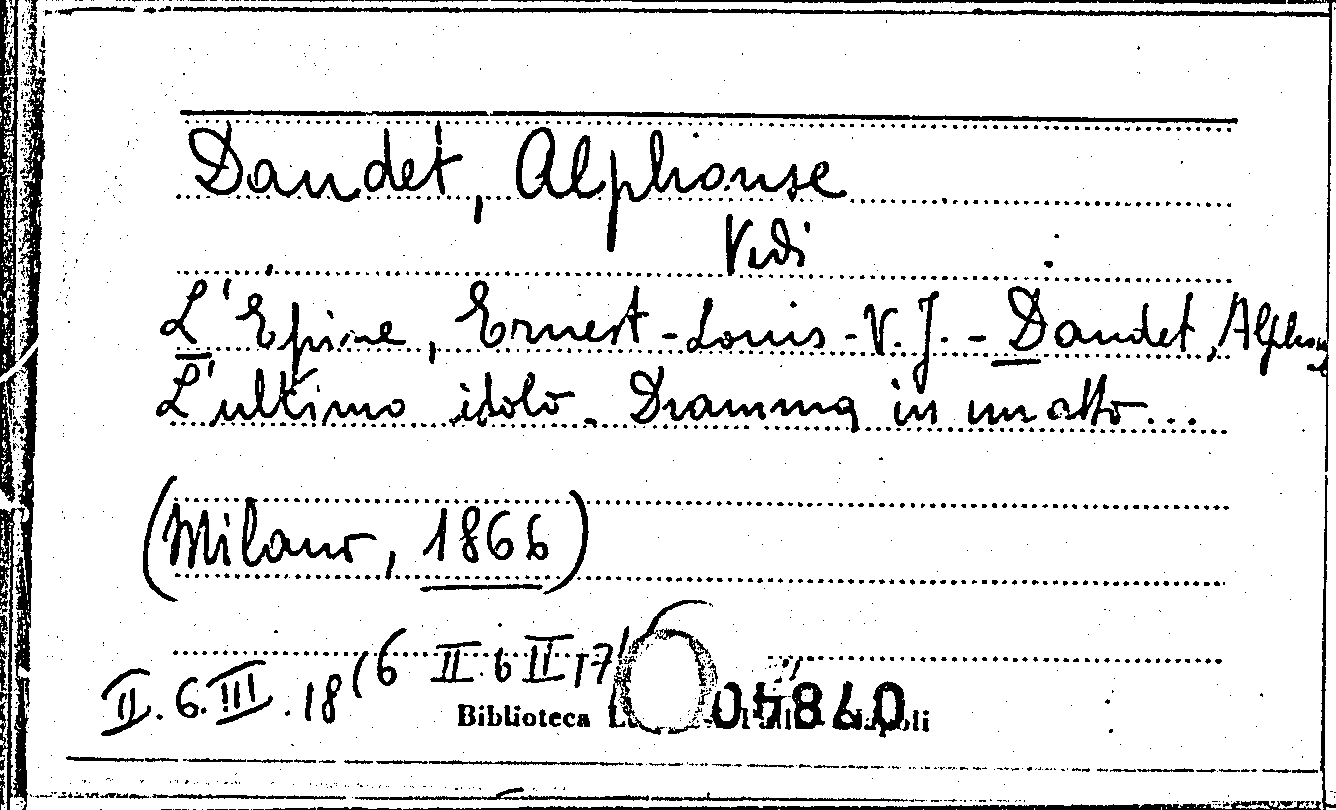 Daudet, Alphonse
Vedi
L'Epine, Ernest-Louis-V.J.-Daudet, Alphonse
L'ultimo idolo. Dramma in un atto...
(Milano, 1866)
(6 II.6 II 17
II.6.III.18
Biblioteca